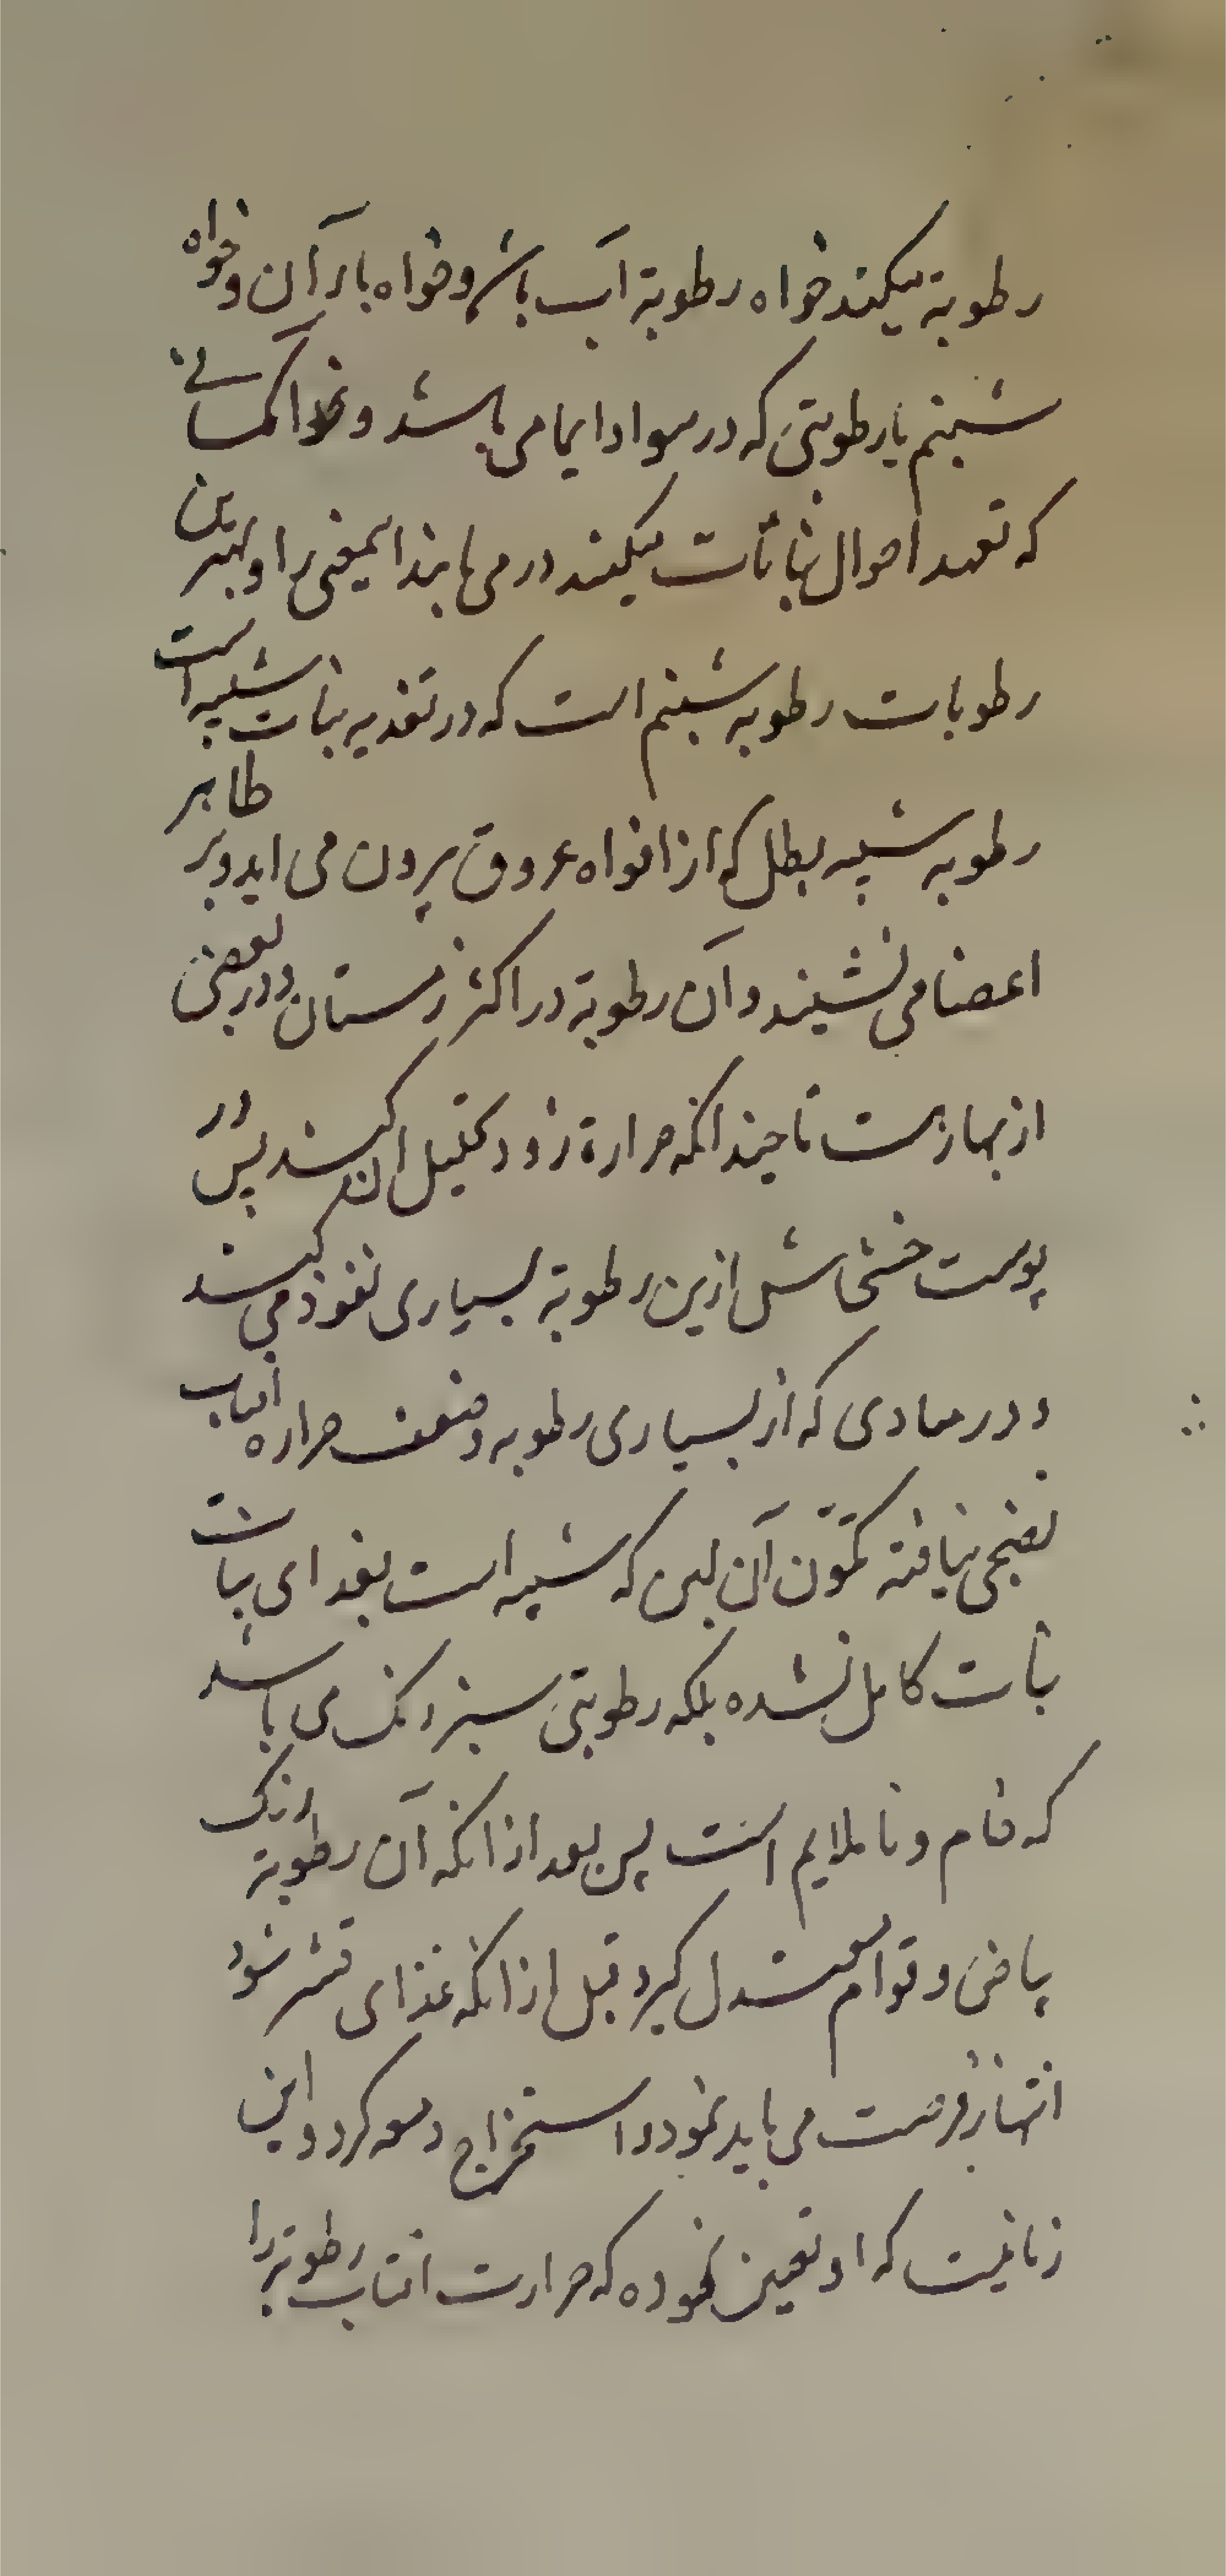 رطوبة میکند خواه رطوبة آب باشد و خواه باران و خواه
شبنم یا رطوبتی که در هوا دایما می باشد و غذا کسانی
که تعهد احوال نباتات میکنند در می یابند اینمعنی را و بهترین
رطوبات رطوبه شبنم است که در تغذیه نبات شبیه است
رطوبه شبیه بطل که از افواه عروق بیرون می اید و بر ظاهر
اعضا می نشیند و آن رطوبة در اکثر زمستان و در بعضی
از بهارست تا چندانکه حرارة زود تحلیل ان کند پس در
پوست خشخاش ازین رطوبة بسیاری نفوذ می کند
و در مبادی که از بسیاری رطوبه و ضعف حراره افتاب
نضجی نیافته تکون آن لبن که شبیه است بغدای نبات
نبات کامل نشده بلکه رطوبتی سبز رنک می باشد
که خام و نا ملایم است پس بعد از انکه آن رطوبة رنک
بیاض و قوام معتدل کیرد قبل از انکه غذای قشر شود
انتهاز فرصت می باید نمود و استخراج دمعه کرد و این
زمانیست که او تعین نموده که حرارت افتاب رطوبة را